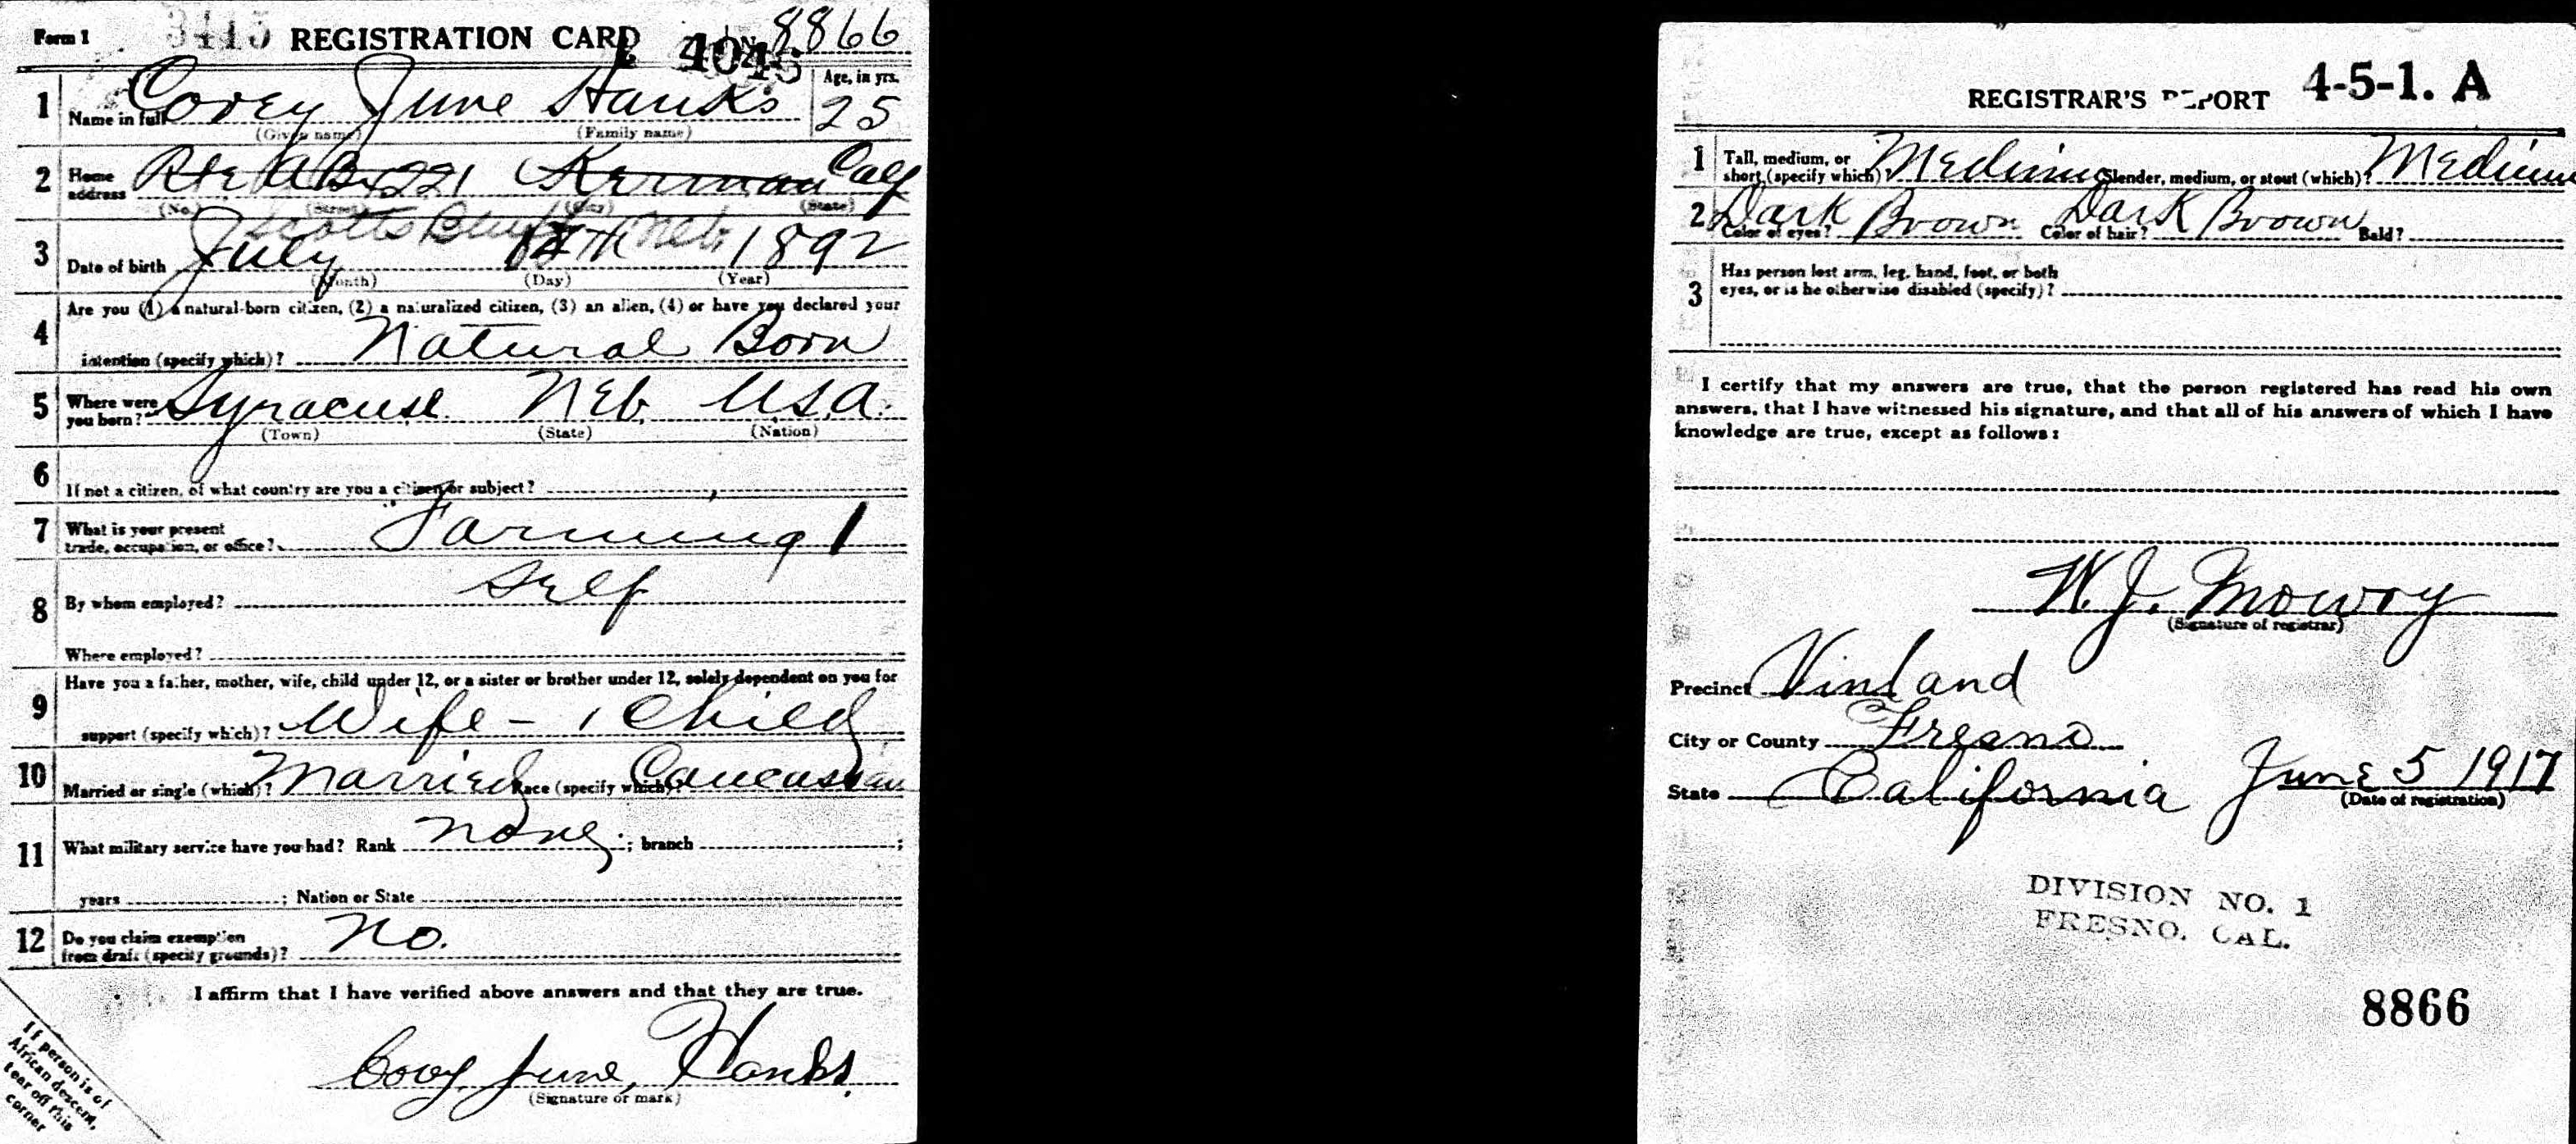 Form 1 3415 REGISTRATION CARD No. 8866
404
1 Name in full Corey June Hanks Age, in yrs. 25
(Given name) (Family name)
2 Home address Rte A Bx 221 Kerman Calf
(No.) (Street) (City) (State)
Scotts Bluff Neb.
3 Date of birth July 1892
(Month) (Day) (Year)
4 Are you (1) a natural-born citizen, (2) a naturalized citizen, (3) an alien, (4) or have you declared your
intention (specify which)? Natural Born
5 Where were you born? Syracuse Neb USA.
(Town) (State) (Nation)
6 If not a citizen, of what country are you a citizen or subject?
7 What is your present trade, occupation, or office? Farming 1
8 By whom employed? Self
Where employed?
9 Have you a father, mother, wife, child under 12, or a sister or brother under 12, solely dependent on you for
support (specify which)? Wife - 1 Child
10 Married or single (which)? Married Race (specify which)? Caucassian
11 What military service have you had? Rank none ; branch ;
years ; Nation or State
12 Do you claim exemption from draft (specify grounds)? No.
I affirm that I have verified above answers and that they are true.
Cory June Hanks
(Signature or mark)
If person is of
African descent,
tear off this
corner
REGISTRAR'S REPORT 4-5-1. A
1 Tall, medium, or short (specify which)? Medium Slender, medium, or stout (which)? Medium
2 Color of eyes? Dark Brown Color of hair? Dark Brown Bald?
3 Has person lost arm, leg, hand, foot, or both
eyes, or is he otherwise disabled (specify)?
I certify that my answers are true, that the person registered has read his own
answers, that I have witnessed his signature, and that all of his answers of which I have
knowledge are true, except as follows:
W. J. Mowry
(Signature of registrar)
Precinct Vinland
City or County Fresno
State California June 5 1917
(Date of registration)
DIVISION NO. 1
FRESNO, CAL.
8866